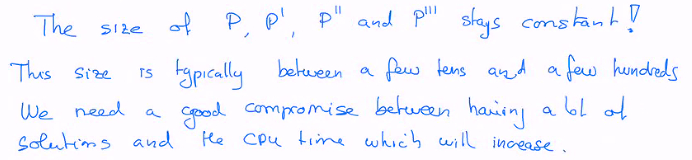 The size of P, P', P'' and P''' stays constant!
This size is typically between a few tens and a few hundreds
We need a good compromise between having a lot of
solutions and the CPU time which will increase.